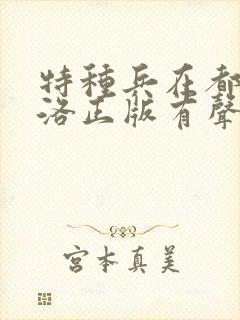 特種兵在都
洛正版有聲
宮本真美